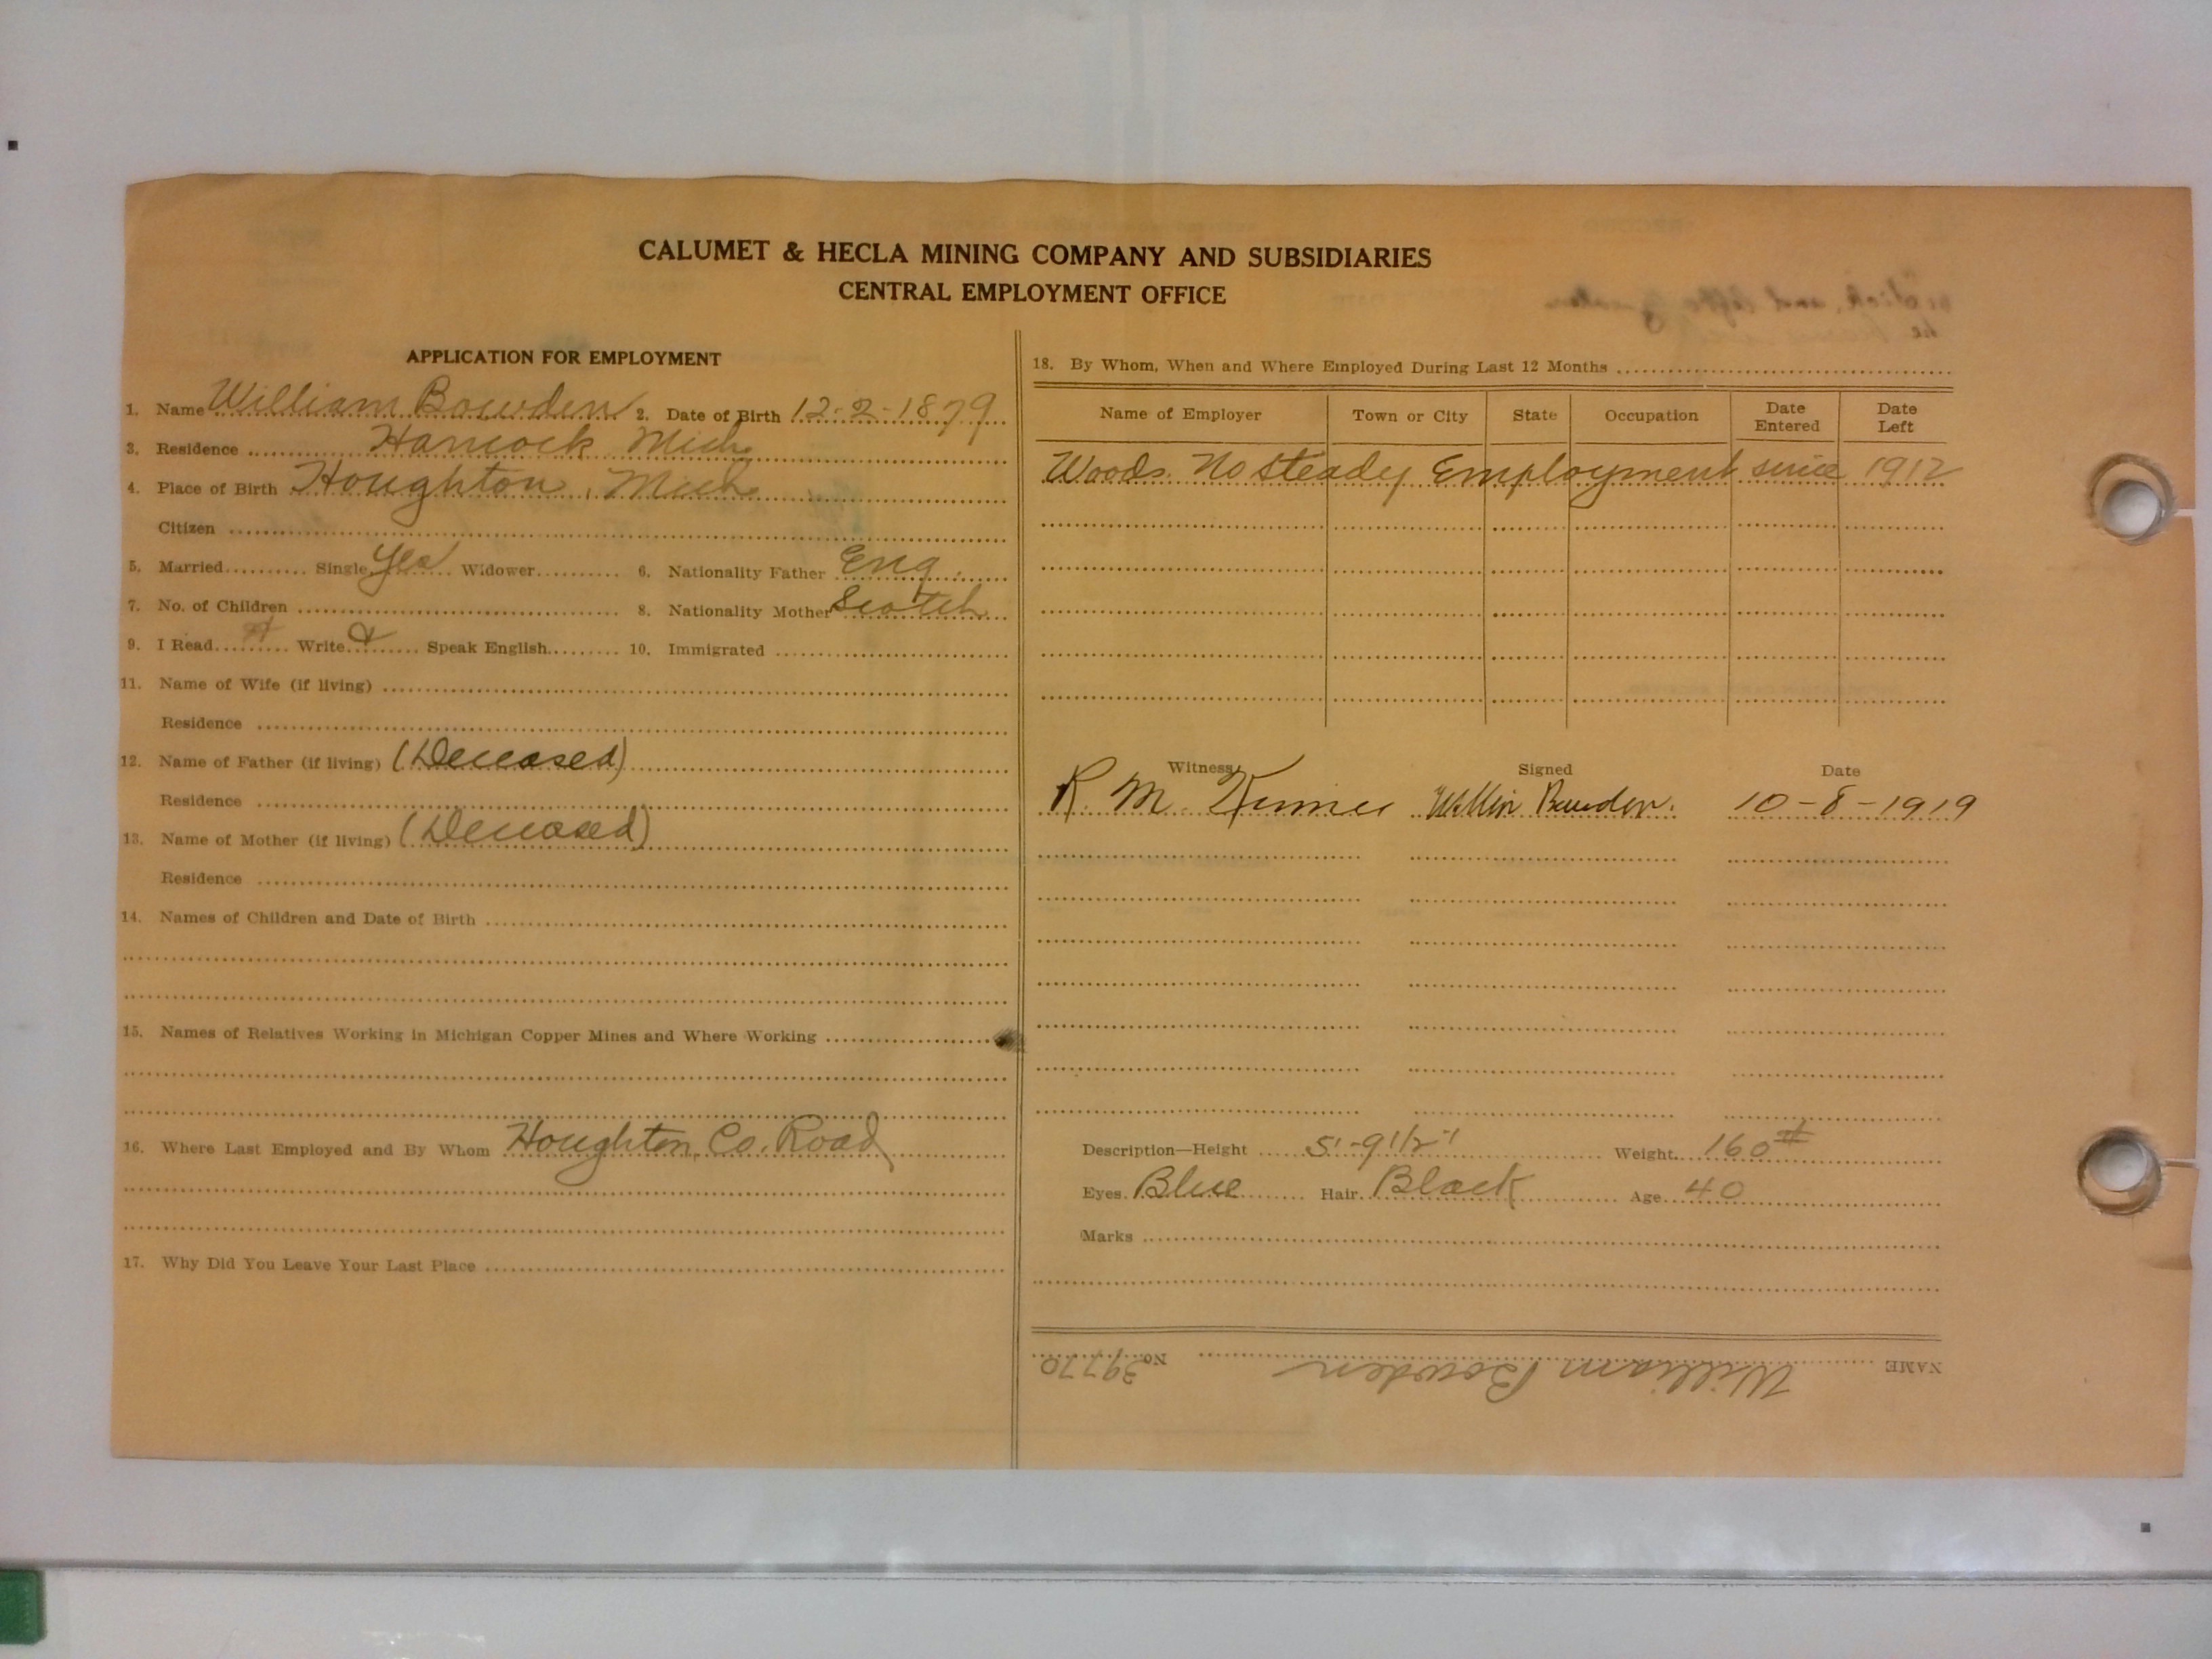 CALUMET & HECLA MINING COMPANY AND SUBSIDIARIES
CENTRAL EMPLOYMENT OFFICE
APPLICATION FOR EMPLOYMENT
1. Name William Bowden 2. Date of Birth 12-2-1879
3. Residence Hancock Mich
4. Place of Birth Houghton, Mich
Citizen
5. Married Single Yes Widower 6. Nationality Father Eng.
7. No. of Children 8. Nationality Mother Scotch
9. I Read Write Speak English 10. Immigrated
11. Name of Wife (if living)
Residence
12. Name of Father (if living) (Deceased)
Residence
13. Name of Mother (if living) (Deceased)
Residence
14. Names of Children and Date of Birth
15. Names of Relatives Working in Michigan Copper Mines and Where Working
16. Where Last Employed and By Whom Houghton Co. Road
17. Why Did You Leave Your Last Place
18. By Whom, When and Where Employed During Last 12 Months
Name of Employer Town or City State Occupation Date Entered Date Left
Woods. No steady Employment since 1912
Witness Signed Date
R. M. 10-8-1919
Description—Height 5'-9 1/2" Weight 160#
Eyes Blue Hair Black Age 40
Marks
NAME William Bowden No. 39770